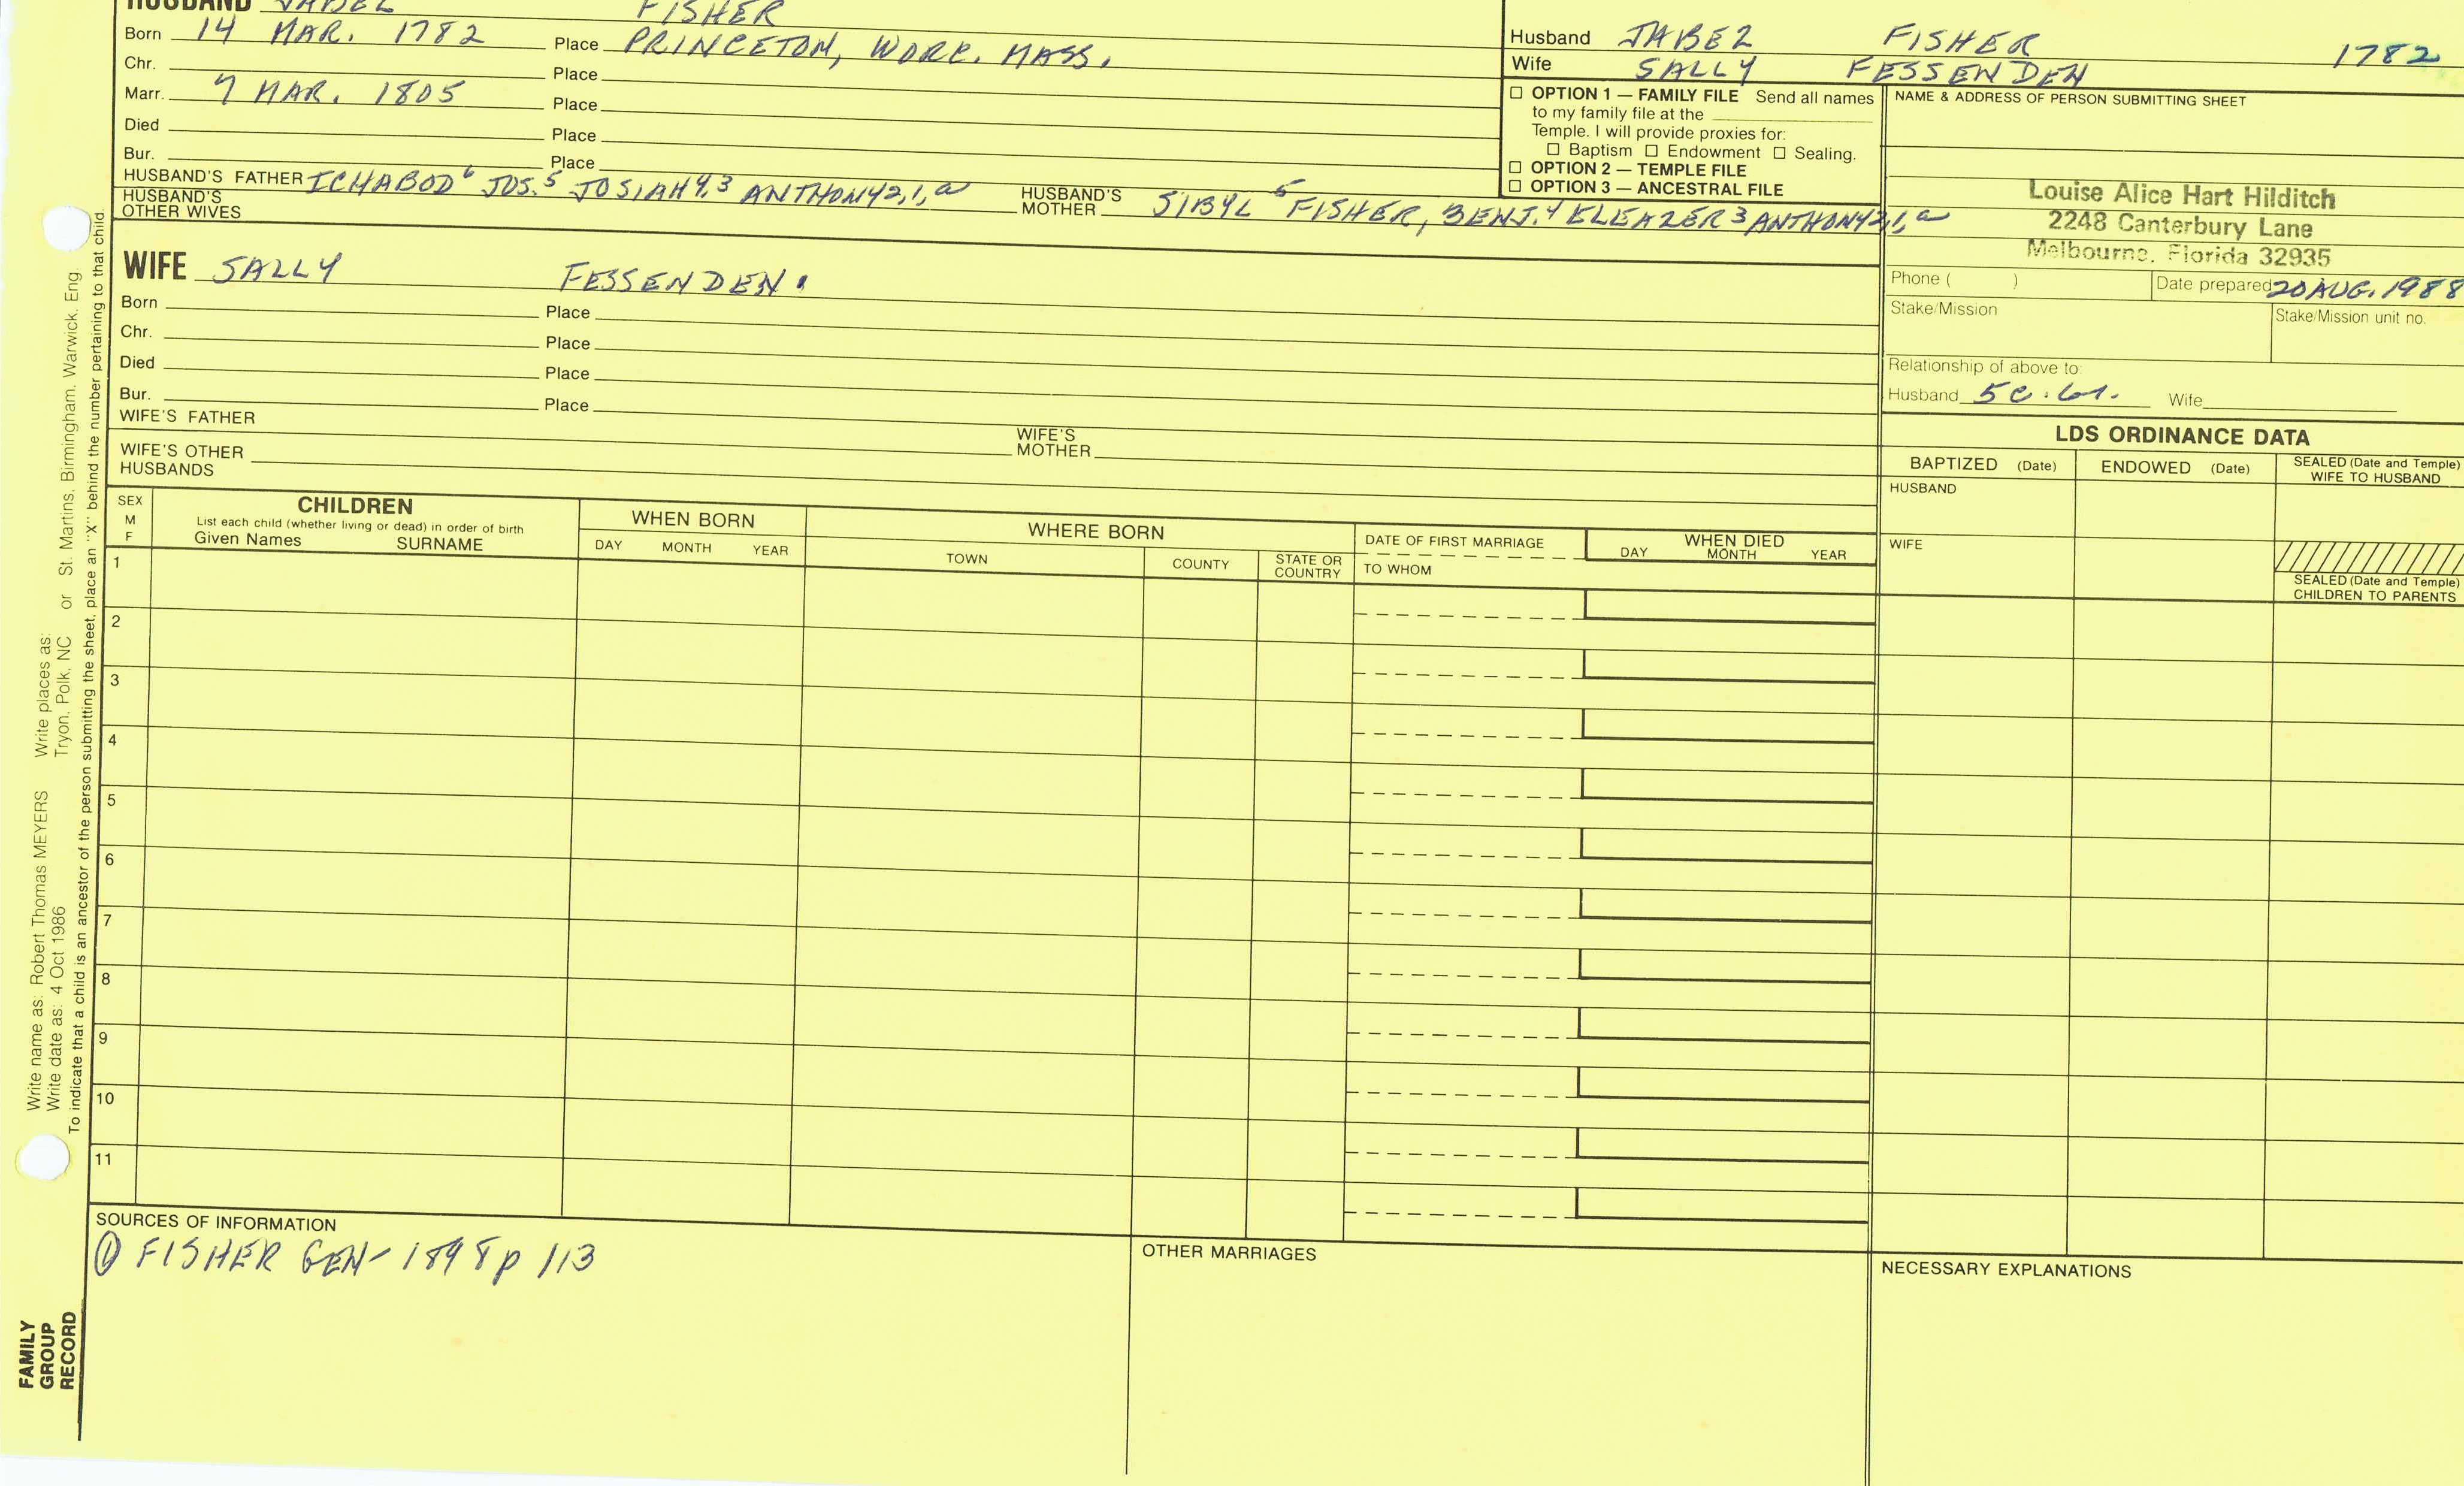 HUSBAND JABEZ FISHER
Born 14 MAR. 1782 Place PRINCETON, WORC. MASS.
Chr. Place
Marr. 7 MAR. 1805 Place
Died Place
Bur. Place
HUSBAND'S FATHER ICHABOD⁶ JOS.⁵ JOSIAH⁴,³ ANTHONY²,¹,ᵃ HUSBAND'S MOTHER SIBYL⁵ FISHER, BENJ.⁴ ELEAZER³ ANTHONY²,¹,ᵃ
HUSBAND'S OTHER WIVES
WIFE SALLY FESSENDEN.
Born Place
Chr. Place
Died Place
Bur. Place
WIFE'S FATHER WIFE'S MOTHER
WIFE'S OTHER HUSBANDS
Husband JABEZ FISHER 1782
Wife SALLY FESSENDEN
☐ OPTION 1 — FAMILY FILE Send all names
to my family file at the
Temple. I will provide proxies for:
☐ Baptism ☐ Endowment ☐ Sealing.
☐ OPTION 2 — TEMPLE FILE
☐ OPTION 3 — ANCESTRAL FILE
NAME & ADDRESS OF PERSON SUBMITTING SHEET
Louise Alice Hart Hilditch
2248 Canterbury Lane
Melbourne, Florida 32935
Phone ( ) Date prepared 20 AUG. 1988
Stake/Mission Stake/Mission unit no.
Relationship of above to:
Husband 5c. Wife
LDS ORDINANCE DATA
BAPTIZED (Date) ENDOWED (Date) SEALED (Date and Temple) WIFE TO HUSBAND
HUSBAND
WIFE
SEALED (Date and Temple)
CHILDREN TO PARENTS
SEX
M
F
CHILDREN
List each child (whether living or dead) in order of birth
Given Names SURNAME
WHEN BORN
DAY MONTH YEAR
WHERE BORN
TOWN COUNTY STATE OR COUNTRY
DATE OF FIRST MARRIAGE
TO WHOM
WHEN DIED
DAY MONTH YEAR
1
2
3
4
5
6
7
8
9
10
11
SOURCES OF INFORMATION
① FISHER GEN- 1898 p 113
OTHER MARRIAGES
NECESSARY EXPLANATIONS
Write name as: Robert Thomas MEYERS Write places as:
Write date as: 4 Oct 1986 Tryon, Polk, NC or St. Martins, Birmingham, Warwick, Eng.
To indicate that a child is an ancestor of the person submitting the sheet, place an "X" behind the number pertaining to that child.
FAMILY
GROUP
RECORD